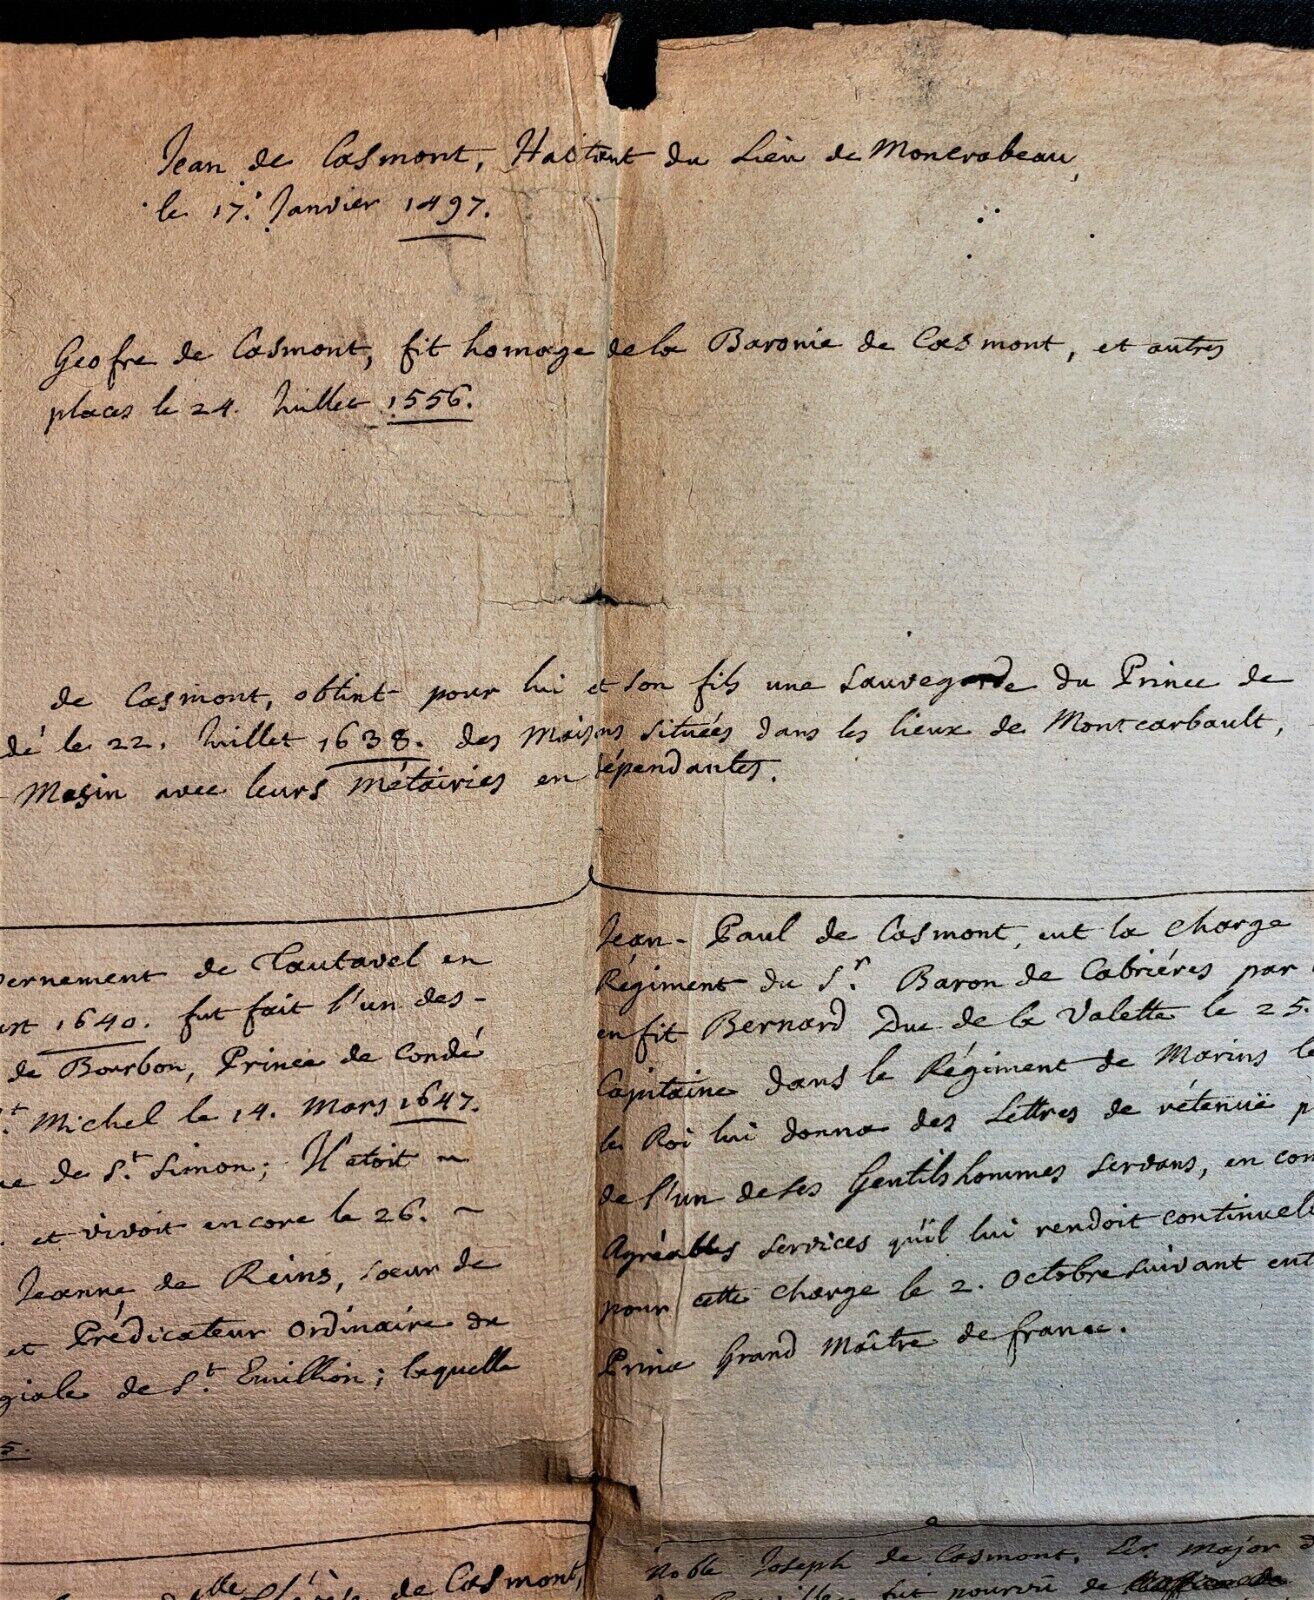 Jean de Casmont, Habitant du Lieu de Moncrabeau,
le 17. Janvier 1497.
Geofre de Casmont, fit homage de la Baronie de Casmont, et autres
places le 24. Juillet 1556.
de Casmont, obtint pour lui et son fils une sauvegarde du Prince de
dé le 22. Juillet 1638. des Maisons situées dans les lieux de Montcarbault,
Mesin avec leurs Métairies en dépendantes.
vernement de Tautavel en
1640. fut fait l'un des-
de Bourbon, Prince de Condé
St. Michel le 14. Mars 1647.
de St. Simon; Il etoit ~
et vivoit encore le 26. ~
Jeanne de Reins, soeur de
et Prédicateur Ordinaire du
giale de St. Emillion; laquelle
5.
Jean-Paul de Casmont, eut la charge
Régiment du Sr. Baron de Cabriéres par
en fit Bernard Duc de la Valette le 25.
Capitaine dans le Régiment de Marins le
le Roi lui donna des Lettres de rétenuë p
de l'un de ses Gentilshommes servans, en con
Agréables services qu'il lui rendoit continuell
pour cette charge le 2. Octobre suivant ent
Prince Grand Maître de france.
de Casmont,
Noble Joseph de Casmont, Er. Major d
fut pourvû de